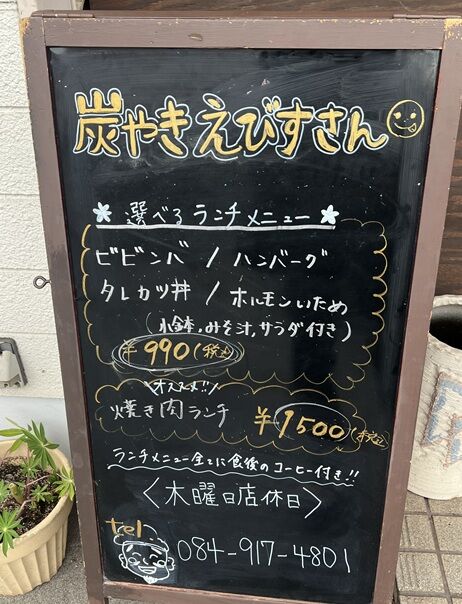 炭やきえびすさん
選べるランチメニュー
ビビンバ / ハンバーグ
タレカツ丼 / ホルモンいため
(小鉢、みそ汁、サラダ付き)
¥990(税込)
\オススメ!!/
焼き肉ランチ ¥1500(税込)
ランチメニュー全てに食後のコーヒー付き!!
〈木曜日店休日〉
tel
084-917-4801